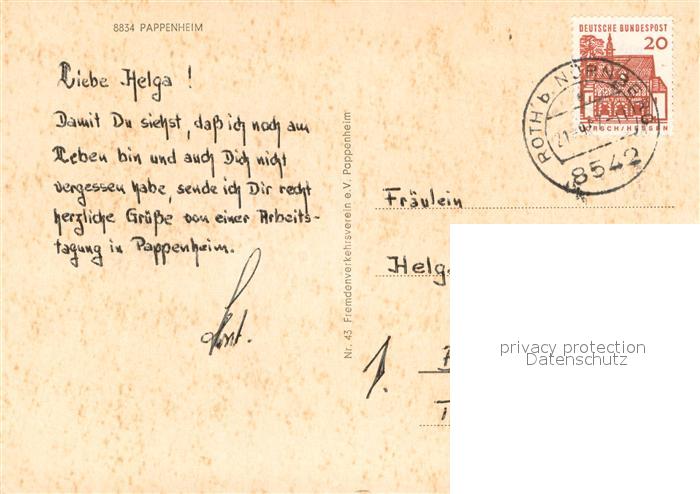 8834 PAPPENHEIM
Liebe Helga !
Damit Du siehst, daß ich noch am
Leben bin und auch Dich nicht
vergessen habe, sende ich Dir recht
herzliche Grüße von einer Arbeits-
tagung in Pappenheim.
Nr. 43 Fremdenverkehrsverein e.V. Pappenheim
DEUTSCHE BUNDESPOST
20
LORSCH/HESSEN
ROTH b. NÜRNBERG
8542
Fräulein
Helga
privacy protection
Datenschutz